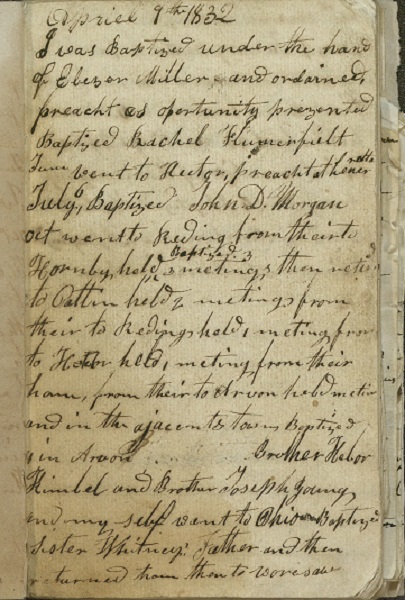 Apriel 9th 1832
I was Baptized under the hand
of Ebezer Miller and ordained,
preacht as oportunity prezented
Baptized Rachel Flumerfelt
June went to Rutor, preacht at heneretta
July, Baptized John D. Morgan
oct went to Reding from their to
Hornby, held, 3 metings, Baptized 3 then
to Catlin held 2 metings from
their to Redings held, meting from
to held, meting from their
home, from their to Arvon held
and in the ajacents towns Baptized
in Avon Brother Hebor
Kimbel and Brother Joseph Young,
and my self went to Ohio Baptized
Sister Whitneys father and then
returned from then to